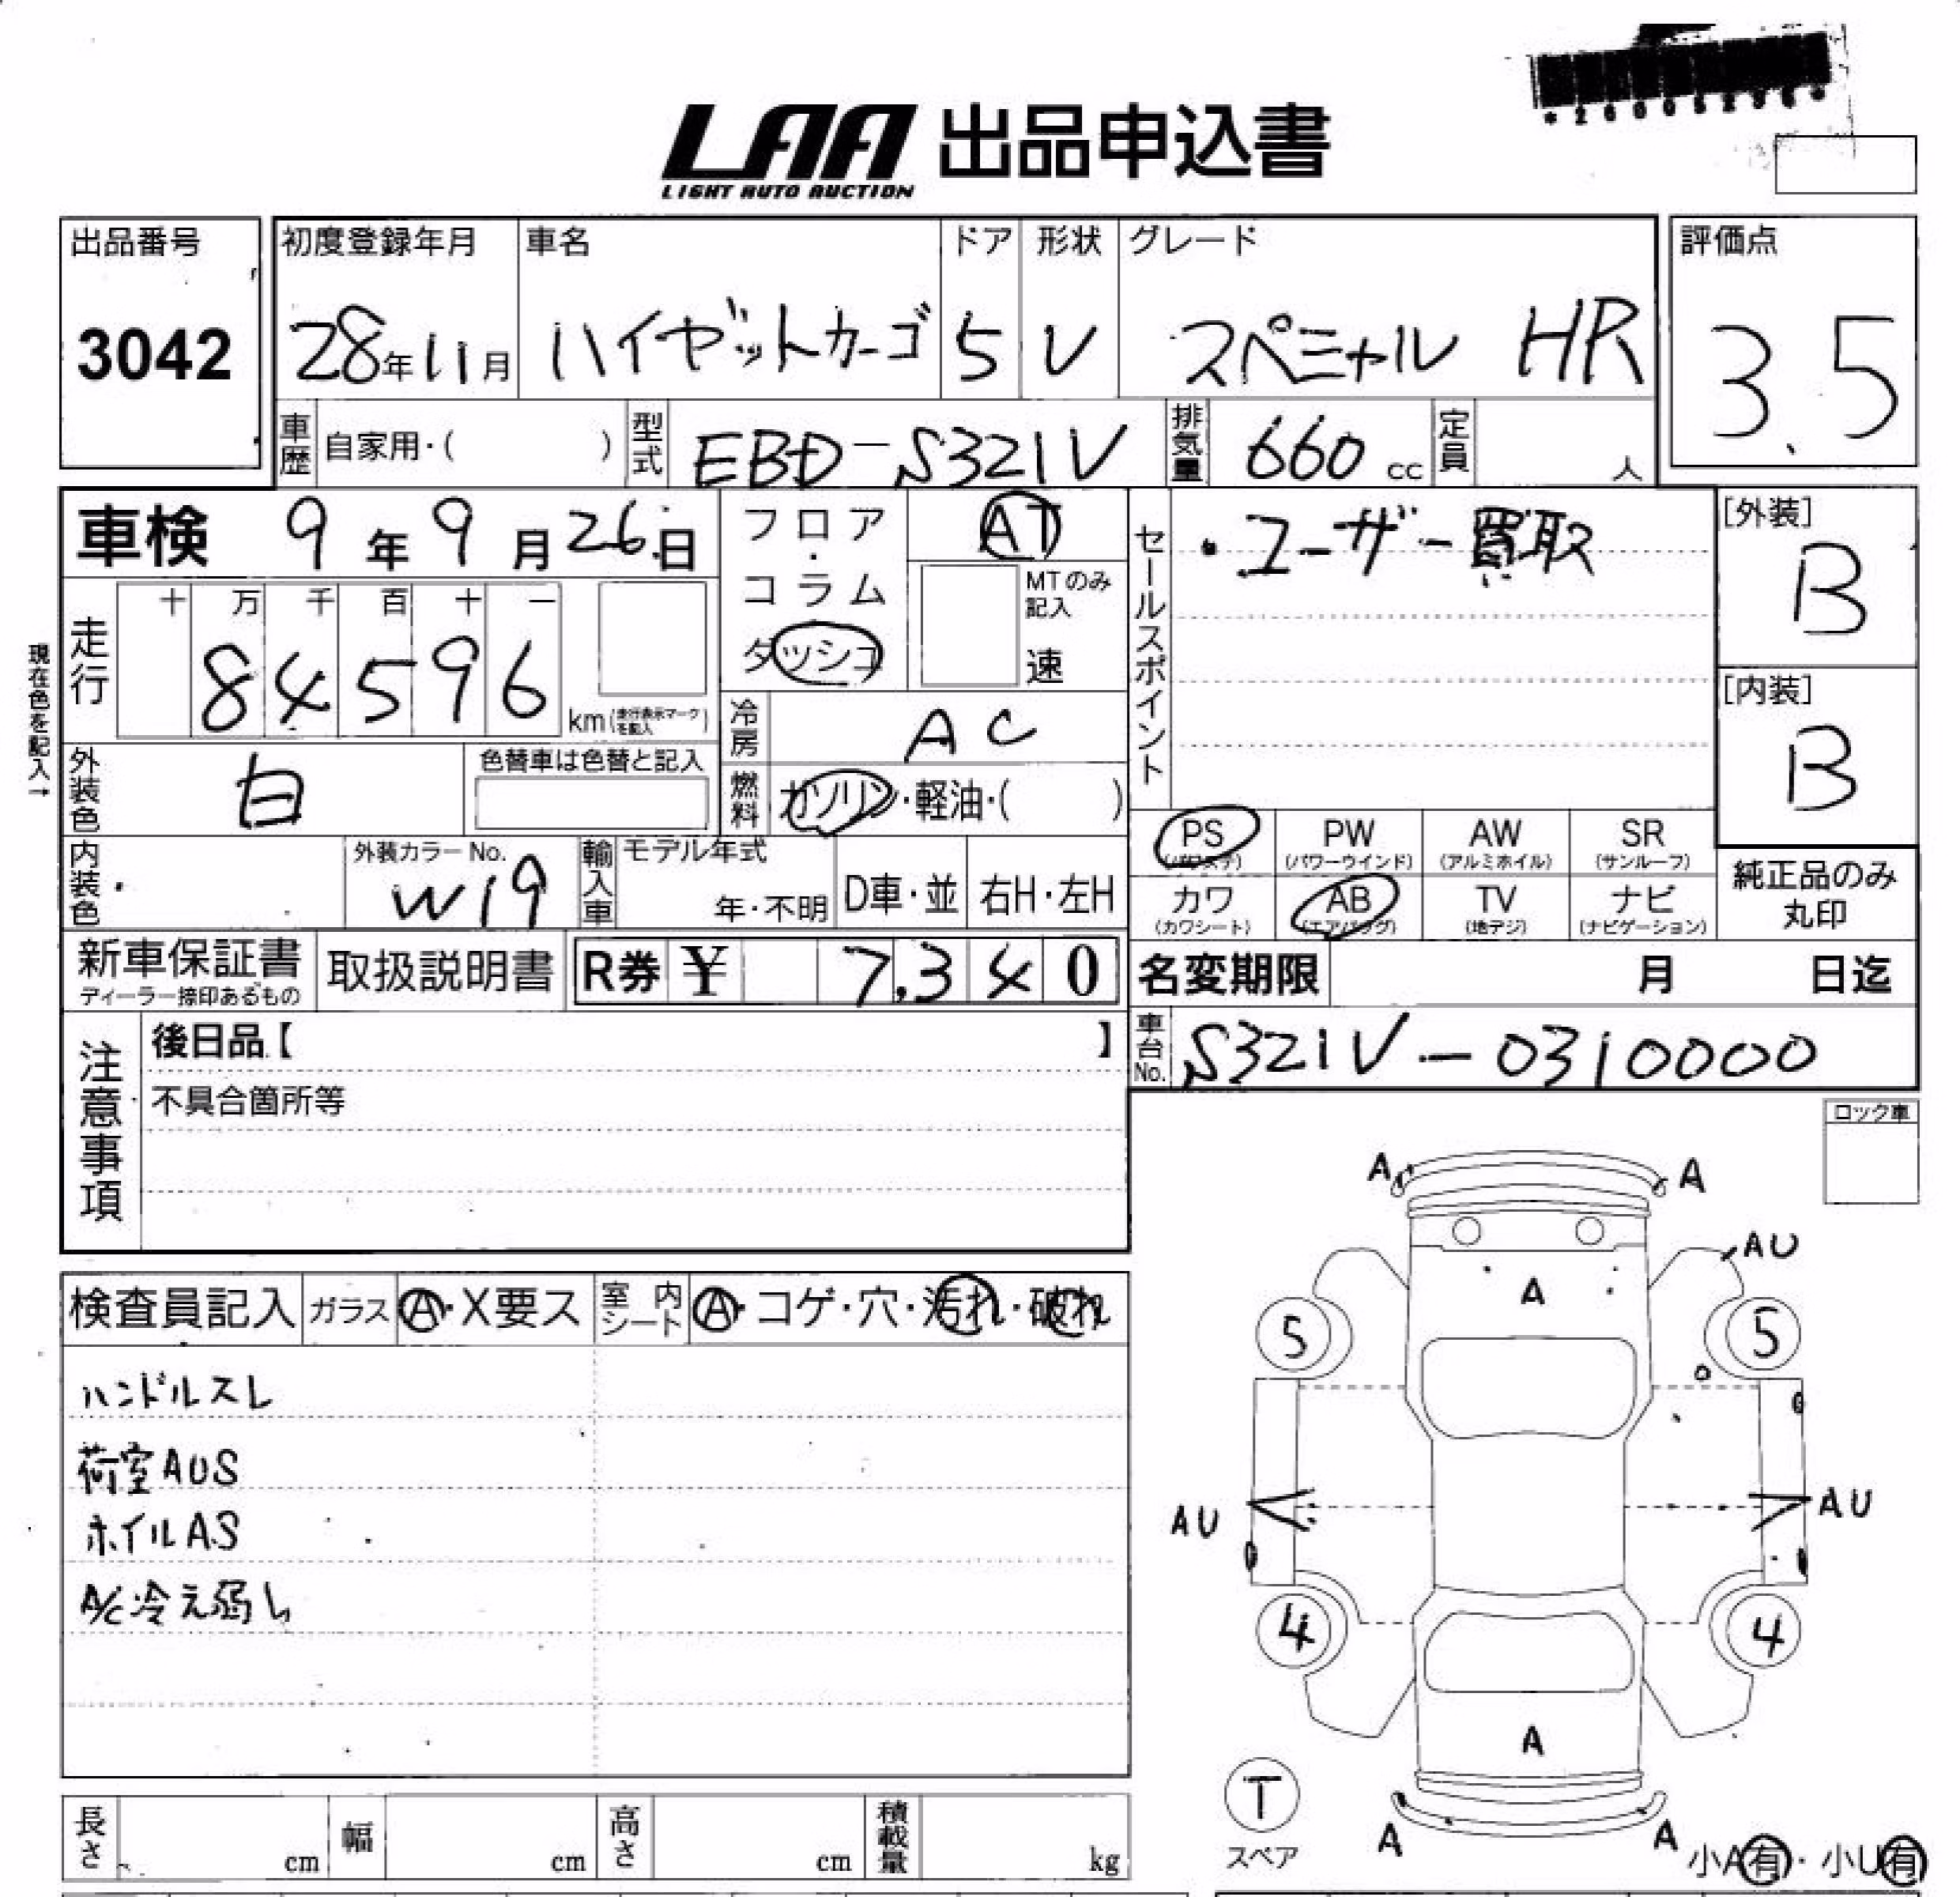 *26005236*
LAA 出品申込書
LIGHT AUTO AUCTION
出品番号
3042
初度登録年月 車名 ドア 形状 グレード
28年11月 ハイゼットカーゴ 5 V スペシャル HR
評価点
3.5
車歴 自家用・( ) 型式 EBD-S321V 排気量 660 cc 定員 人
車検 9年9月26日
フロア・コラム ダッシュ
AT
MTのみ記入
速
セールスポイント
・ユーザー買取
[外装]
B
[内装]
B
現在色を記入→
走行 十 万 千 百 十 一
84596 km(走行表示マークを記入)
冷房 AC
外装色 白 色替車は色替と記入
燃料 ガソリン・軽油・( )
内装色 外装カラーNo. W19
輸入車 モデル年式 年・不明 D車・並 右H・左H
PS (パワステ) PW (パワーウインド) AW (アルミホイル) SR (サンルーフ)
カワ (カワシート) AB (エアバッグ) TV (地デジ) ナビ (ナビゲーション)
純正品のみ丸印
新車保証書 ディーラー捺印あるもの 取扱説明書 R券 ¥ 7,340
名変期限 月 日迄
車台No. S321V-0310000
注意事項
後日品【 】
不具合箇所等
ロック車
検査員記入 ガラス A・X要ス 室内シート A・コゲ・穴・汚れ・破れ
ハンドルスレ
荷室AUS
ホイルAS
A/C冷え弱い
A A
AU
A
5 5
AU AU
4 4
A
T
スペア
A A
小A有・小U有
長さ cm 幅 cm 高さ cm 積載量 kg